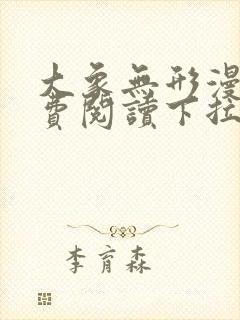 大象無形漫
費閱讀下拉
李育森